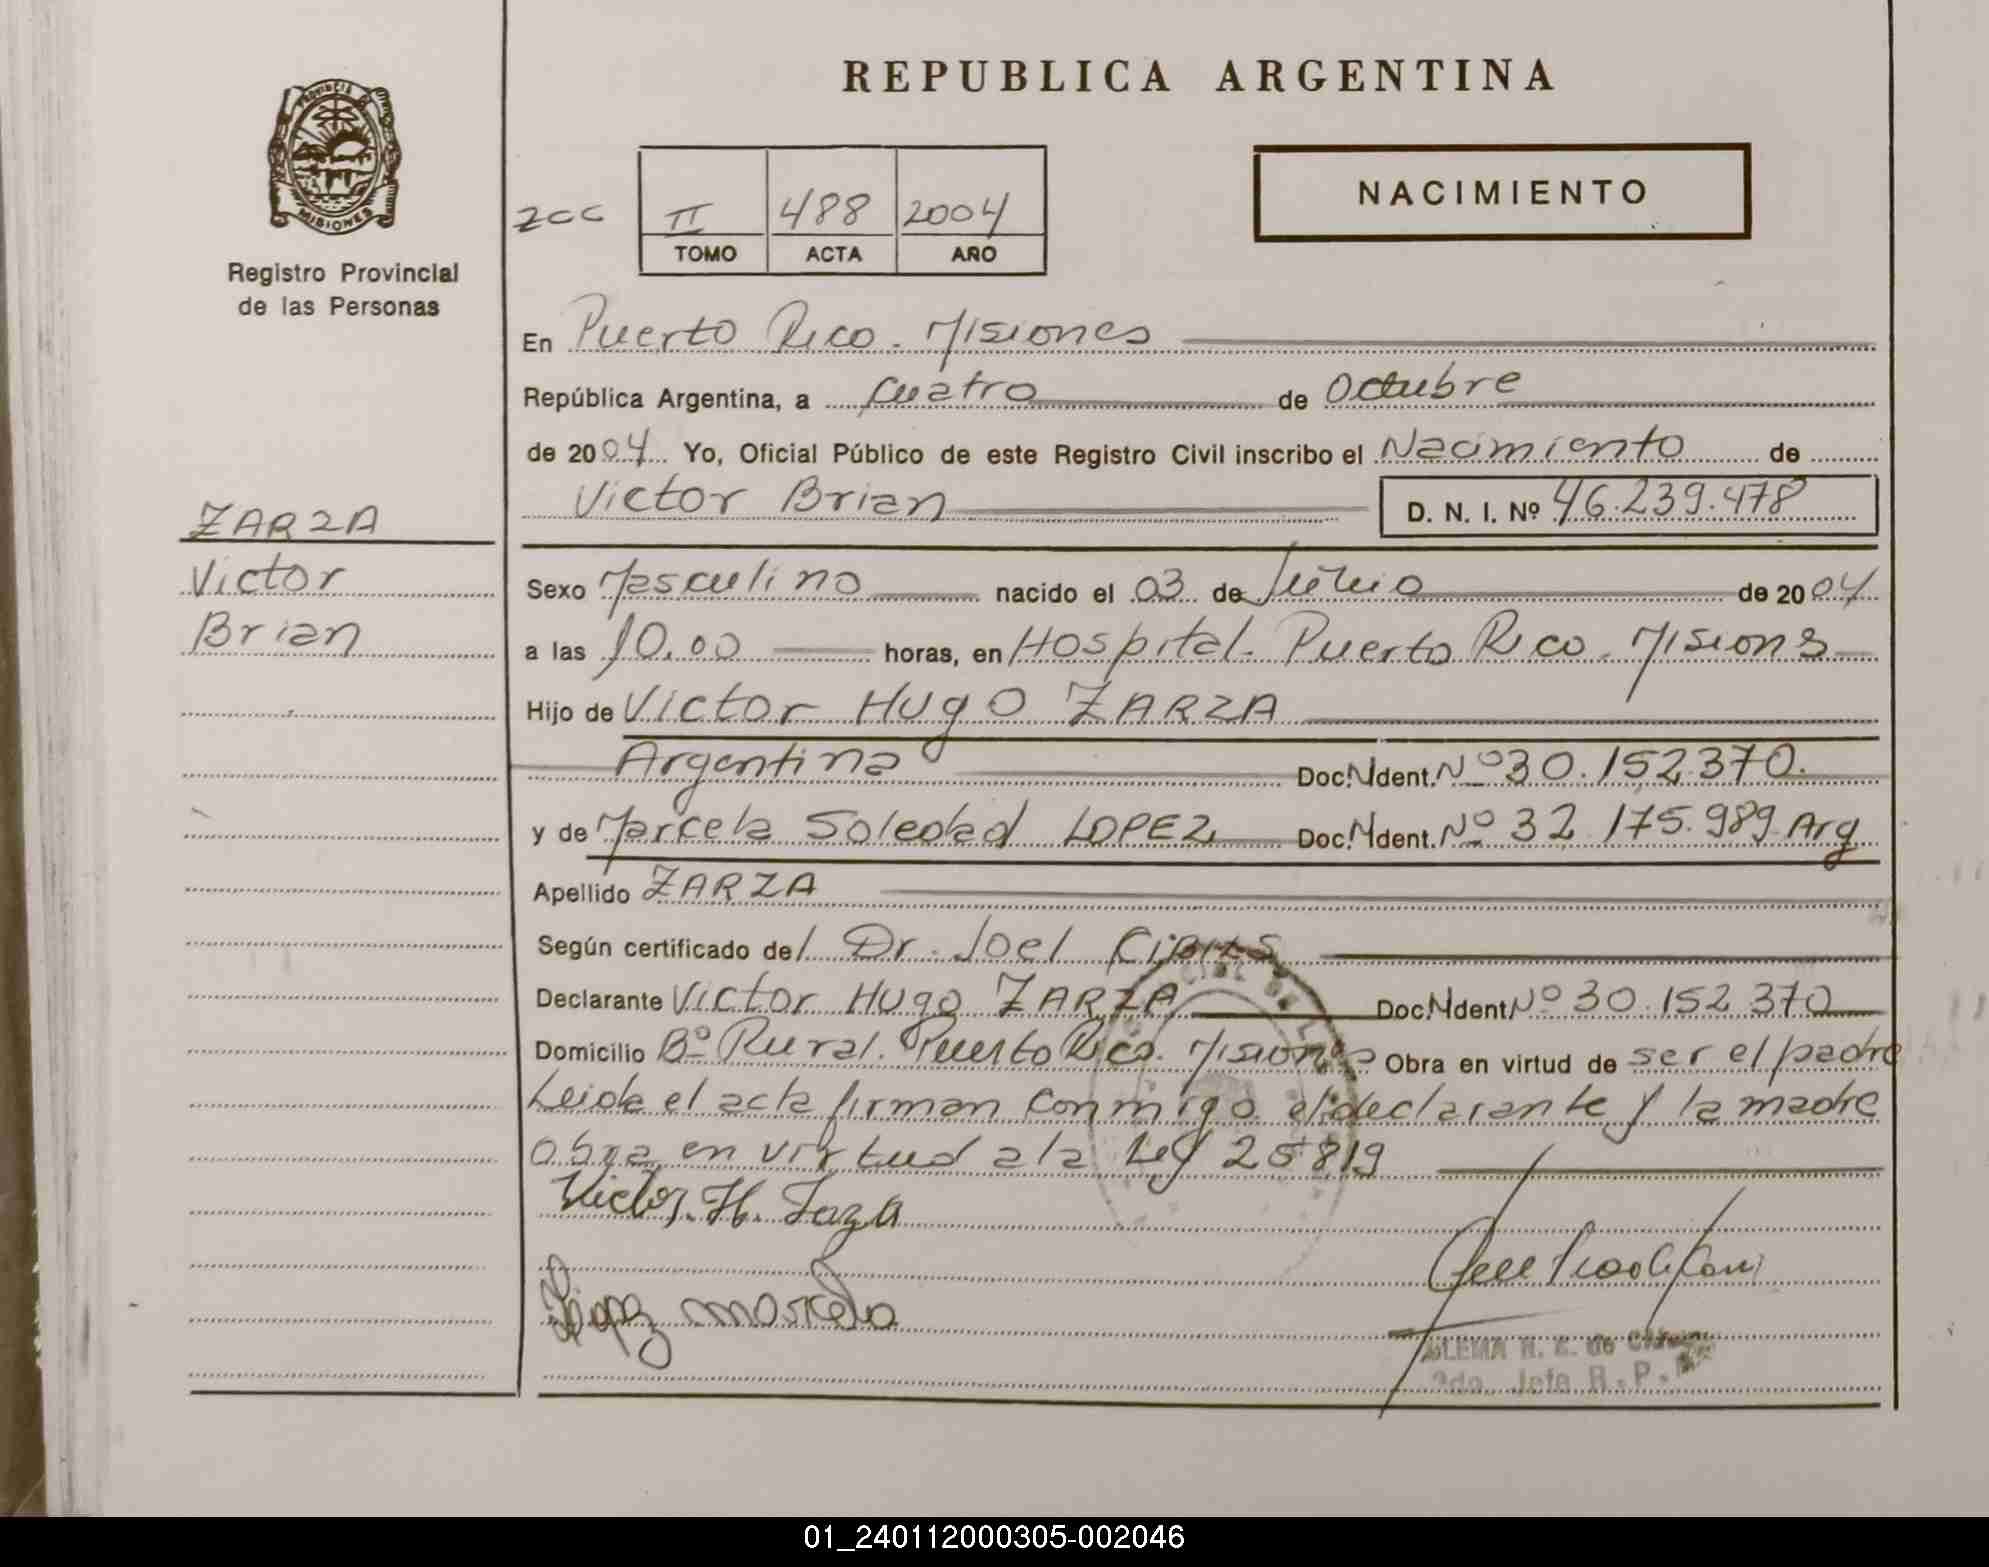 REPUBLICA ARGENTINA
PROVINCIA DE
MISIONES
Registro Provincial
de las Personas
NACIMIENTO
ZCC II 488 2004
TOMO ACTA AÑO
En Puerto Rico. Misiones
República Argentina, a Cuatro de Octubre
de 2004 Yo, Oficial Público de este Registro Civil inscribo el Nacimiento de
Victor Brian D. N. I. Nº 46.239.478
ZARZA
Victor
Brian
Sexo Masculino nacido el 03 de de 2004
a las 10.00 horas, en Hospital. Puerto Rico. Misions
Hijo de Victor Hugo ZARZA
Argentina Doc. N Ident. Nº 30.152.370.
y de Marcela Soledad LOPEZ Doc. N Ident. Nº 32.175.989 Arg
Apellido ZARZA
Según certificado del Dr. Joel
Declarante Victor Hugo ZARZA Doc. N Ident Nº 30.152.370
Domicilio Bº Rural. Puerto Rico. Misiones Obra en virtud de ser el padre
Leida el acta firman conmigo el declarante y la madre
obra en virtud a la Ley 25819
Victor. H. Zaza
López Marcela
R. E. de
2da. Jefa R. P.
01_240112000305-002046